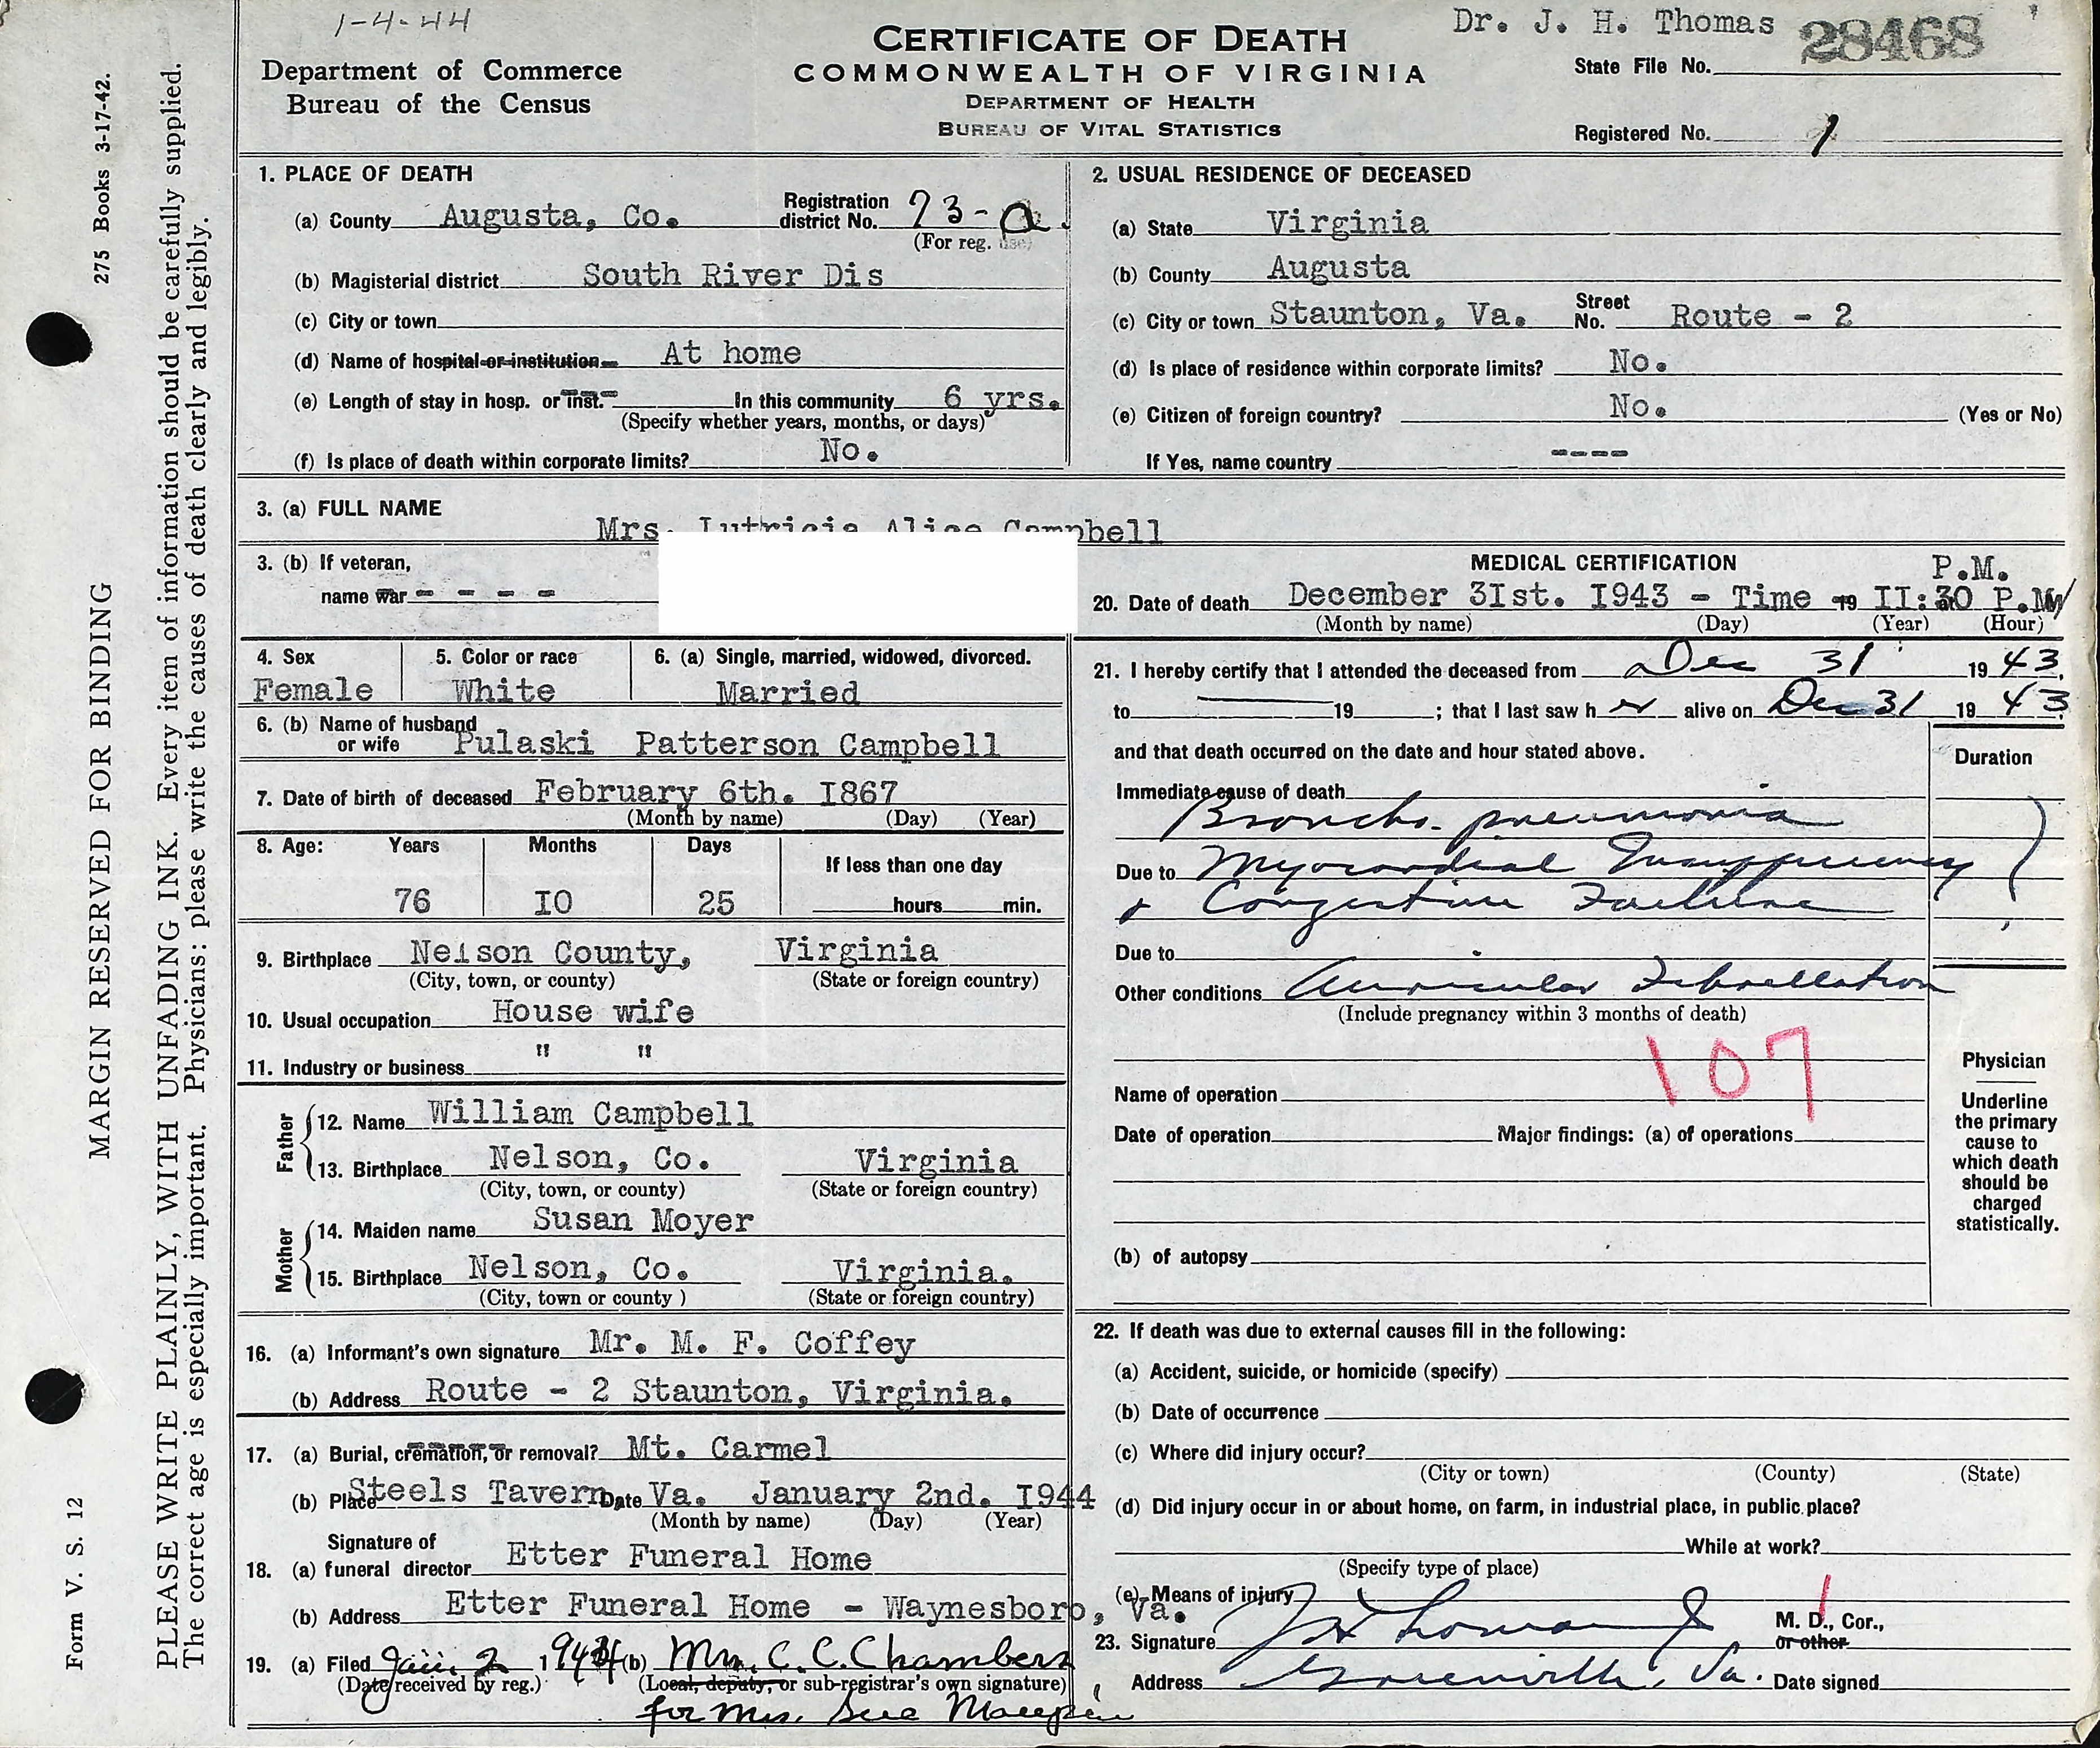 1-4-44
Dr. J. H. Thomas
28468
CERTIFICATE OF DEATH
COMMONWEALTH OF VIRGINIA
DEPARTMENT OF HEALTH
BUREAU OF VITAL STATISTICS
Department of Commerce
Bureau of the Census
State File No.
Registered No. 1
275 Books 3-17-42.
MARGIN RESERVED FOR BINDING
Form V. S. 12
PLEASE WRITE PLAINLY, WITH UNFADING INK. Every item of information should be carefully supplied.
The correct age is especially important. Physicians: please write the causes of death clearly and legibly.
1. PLACE OF DEATH
(a) County Augusta, Co. Registration district No. 73-a.
(For reg. use)
(b) Magisterial district South River Dis
(c) City or town
(d) Name of hospital or institution At home
(e) Length of stay in hosp. or inst. In this community 6 yrs.
(Specify whether years, months, or days)
(f) Is place of death within corporate limits? No.
2. USUAL RESIDENCE OF DECEASED
(a) State Virginia
(b) County Augusta
(c) City or town Staunton, Va. Street No. Route - 2
(d) Is place of residence within corporate limits? No.
(e) Citizen of foreign country? No. (Yes or No)
If Yes, name country ----
3. (a) FULL NAME
Mrs. Lutricia Alice Campbell
3. (b) If veteran,
name war - - - -
4. Sex
Female
5. Color or race
White
6. (a) Single, married, widowed, divorced.
Married
6. (b) Name of husband or wife Pulaski Patterson Campbell
7. Date of birth of deceased February 6th. I867
(Month by name) (Day) (Year)
8. Age: Years Months Days If less than one day
76 IO 25 hours min.
9. Birthplace Nelson County, Virginia
(City, town, or county) (State or foreign country)
10. Usual occupation House wife
11. Industry or business " "
Father
12. Name William Campbell
13. Birthplace Nelson, Co. Virginia
(City, town, or county) (State or foreign country)
Mother
14. Maiden name Susan Moyer
15. Birthplace Nelson, Co. Virginia.
(City, town or county ) (State or foreign country)
16. (a) Informant's own signature Mr. M. F. Coffey
(b) Address Route - 2 Staunton, Virginia.
17. (a) Burial, cremation, or removal? Mt. Carmel
(b) Place Steels Tavern, Date Va. January 2nd. I944
(Month by name) (Day) (Year)
18. (a) Signature of funeral director Etter Funeral Home
(b) Address Etter Funeral Home - Waynesboro, Va.
19. (a) Filed Jan. 2 1944 (b) Mrs. C. C. Chambers
(Date received by reg.) (Local, deputy, or sub-registrar's own signature)
for Mrs. Sue
MEDICAL CERTIFICATION
P.M.
20. Date of death December 3Ist. I943 - Time 19 II:30 P.M
(Month by name) (Day) (Year) (Hour)
21. I hereby certify that I attended the deceased from Dec 31 1943,
to 19 ; that I last saw h er alive on Dec 31 1943
and that death occurred on the date and hour stated above.
Duration
Immediate cause of death
Broncho-pneumonia
Due to Myocardial Insufficiency
& Congestive Failure
Due to
Other conditions Auricular Fibrillation
(Include pregnancy within 3 months of death)
107
Name of operation
Date of operation Major findings: (a) of operations
(b) of autopsy
Physician
Underline
the primary
cause to
which death
should be
charged
statistically.
22. If death was due to external causes fill in the following:
(a) Accident, suicide, or homicide (specify)
(b) Date of occurrence
(c) Where did injury occur?
(City or town) (County) (State)
(d) Did injury occur in or about home, on farm, in industrial place, in public place?
While at work?
(Specify type of place)
(e) Means of injury
23. Signature J H Thomas Jr M. D., Cor., or other
Address Greenville, Va. Date signed